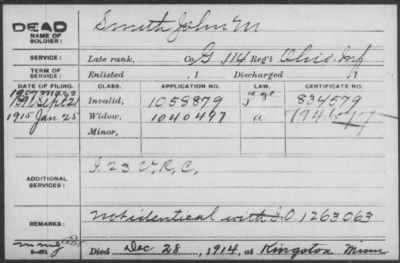 DEAD
NAME OF SOLDIER:
Smith John M
SERVICE: Late rank, Co G 114 Regt Ohio Inf
TERM OF SERVICE: Enlisted , 1 Discharged , 1
DATE OF FILING. CLASS. APPLICATION NO. LAW. CERTIFICATE NO.
1891 Sept 21 Invalid, 1058879 age 834579
1915 Jan 25 Widow, 1040497 a
Minor,
ADDITIONAL SERVICES: I. 23 V.R.C.
REMARKS: Not identical with S.O 1263063
Died Dec 28, 1914, at Kingston Minn